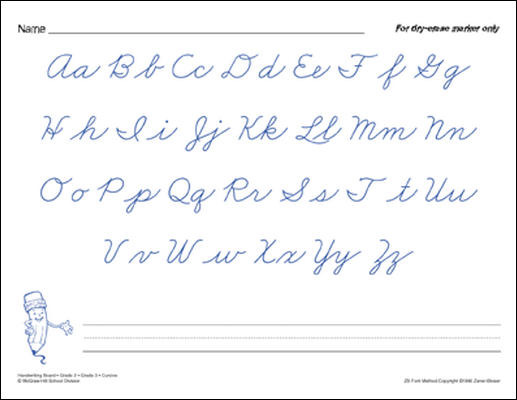 Name
For dry-erase marker only
Aa Bb Cc Dd Ee Ff Gg
Hh Ii Jj Kk Ll Mm Nn
Oo Pp Qq Rr Ss Tt Uu
Vv Ww Xx Yy Zz
Handwriting Board • Grade 2 • Grade 3 • Cursive
© McGraw-Hill School Division
ZB Font Method Copyright ©1996 Zaner-Bloser